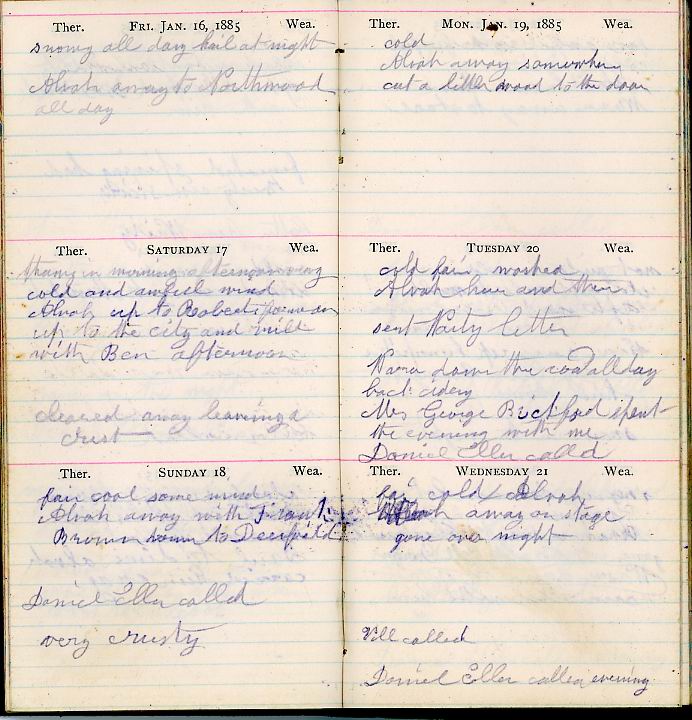 Ther. FRI. JAN. 16, 1885 Wea.
snowy all day hail at night
Alvah away to Northwood
all day
Ther. SATURDAY 17 Wea.
in morning afternoon very
cold and awful wind
Alvah up to Roberts forenoon
up to the city and mill
with Ben afternoon
cleared away leaving a
crust
Ther. SUNDAY 18 Wea.
fair cool some wind
Alvah away with Frank
Brown down to Deerfield
Daniel Eller called
very crusty
Ther. MON. JAN. 19, 1885 Wea.
cold
Alvah away somewhere
cut a little wood to the door
Ther. TUESDAY 20 Wea.
cold fair washed
Alvah here and there
sent letter
down the road all day
Mrs George Bickford spent
the evening with me
Daniel Eller called
Ther. WEDNESDAY 21 Wea.
fair cold Alvah
away on stage
gone over night
Will called
Daniel Eller called evening